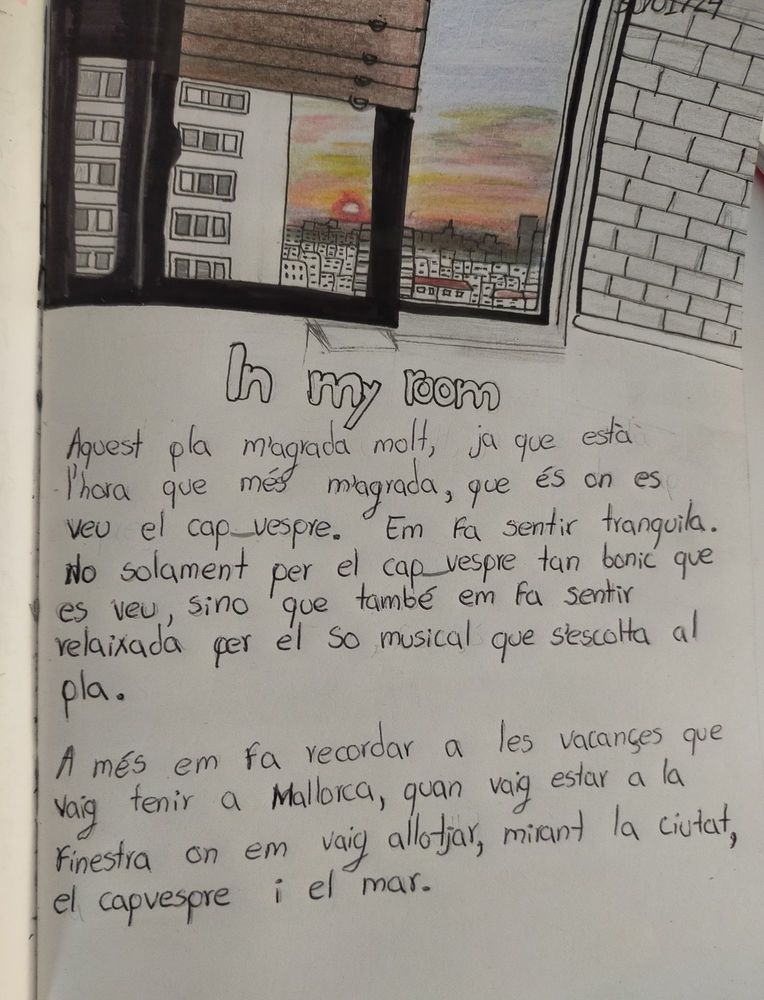 In my room
Aquest pla m'agrada molt, ja que està
l'hora que més m'agrada, que és on es
veu el cap_vespre. Em fa sentir tranquila.
No solament per el cap_vespre tan bonic que
es veu, sino que també em fa sentir
relaixada per el so musical que s'escolta al
pla.
A més em fa recordar a les vacançes que
vaig tenir a Mallorca, quan vaig estar a la
finestra on em vaig allotjar, mirant la ciutat,
el capvespre i el mar.